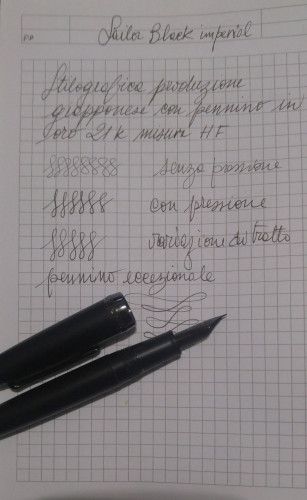 Sailor Black imperial
Stilografica produzione
giapponese con pennino in
oro 21k misura HF
senza pressione
con pressione
variazione di tratto
pennino eccezionale